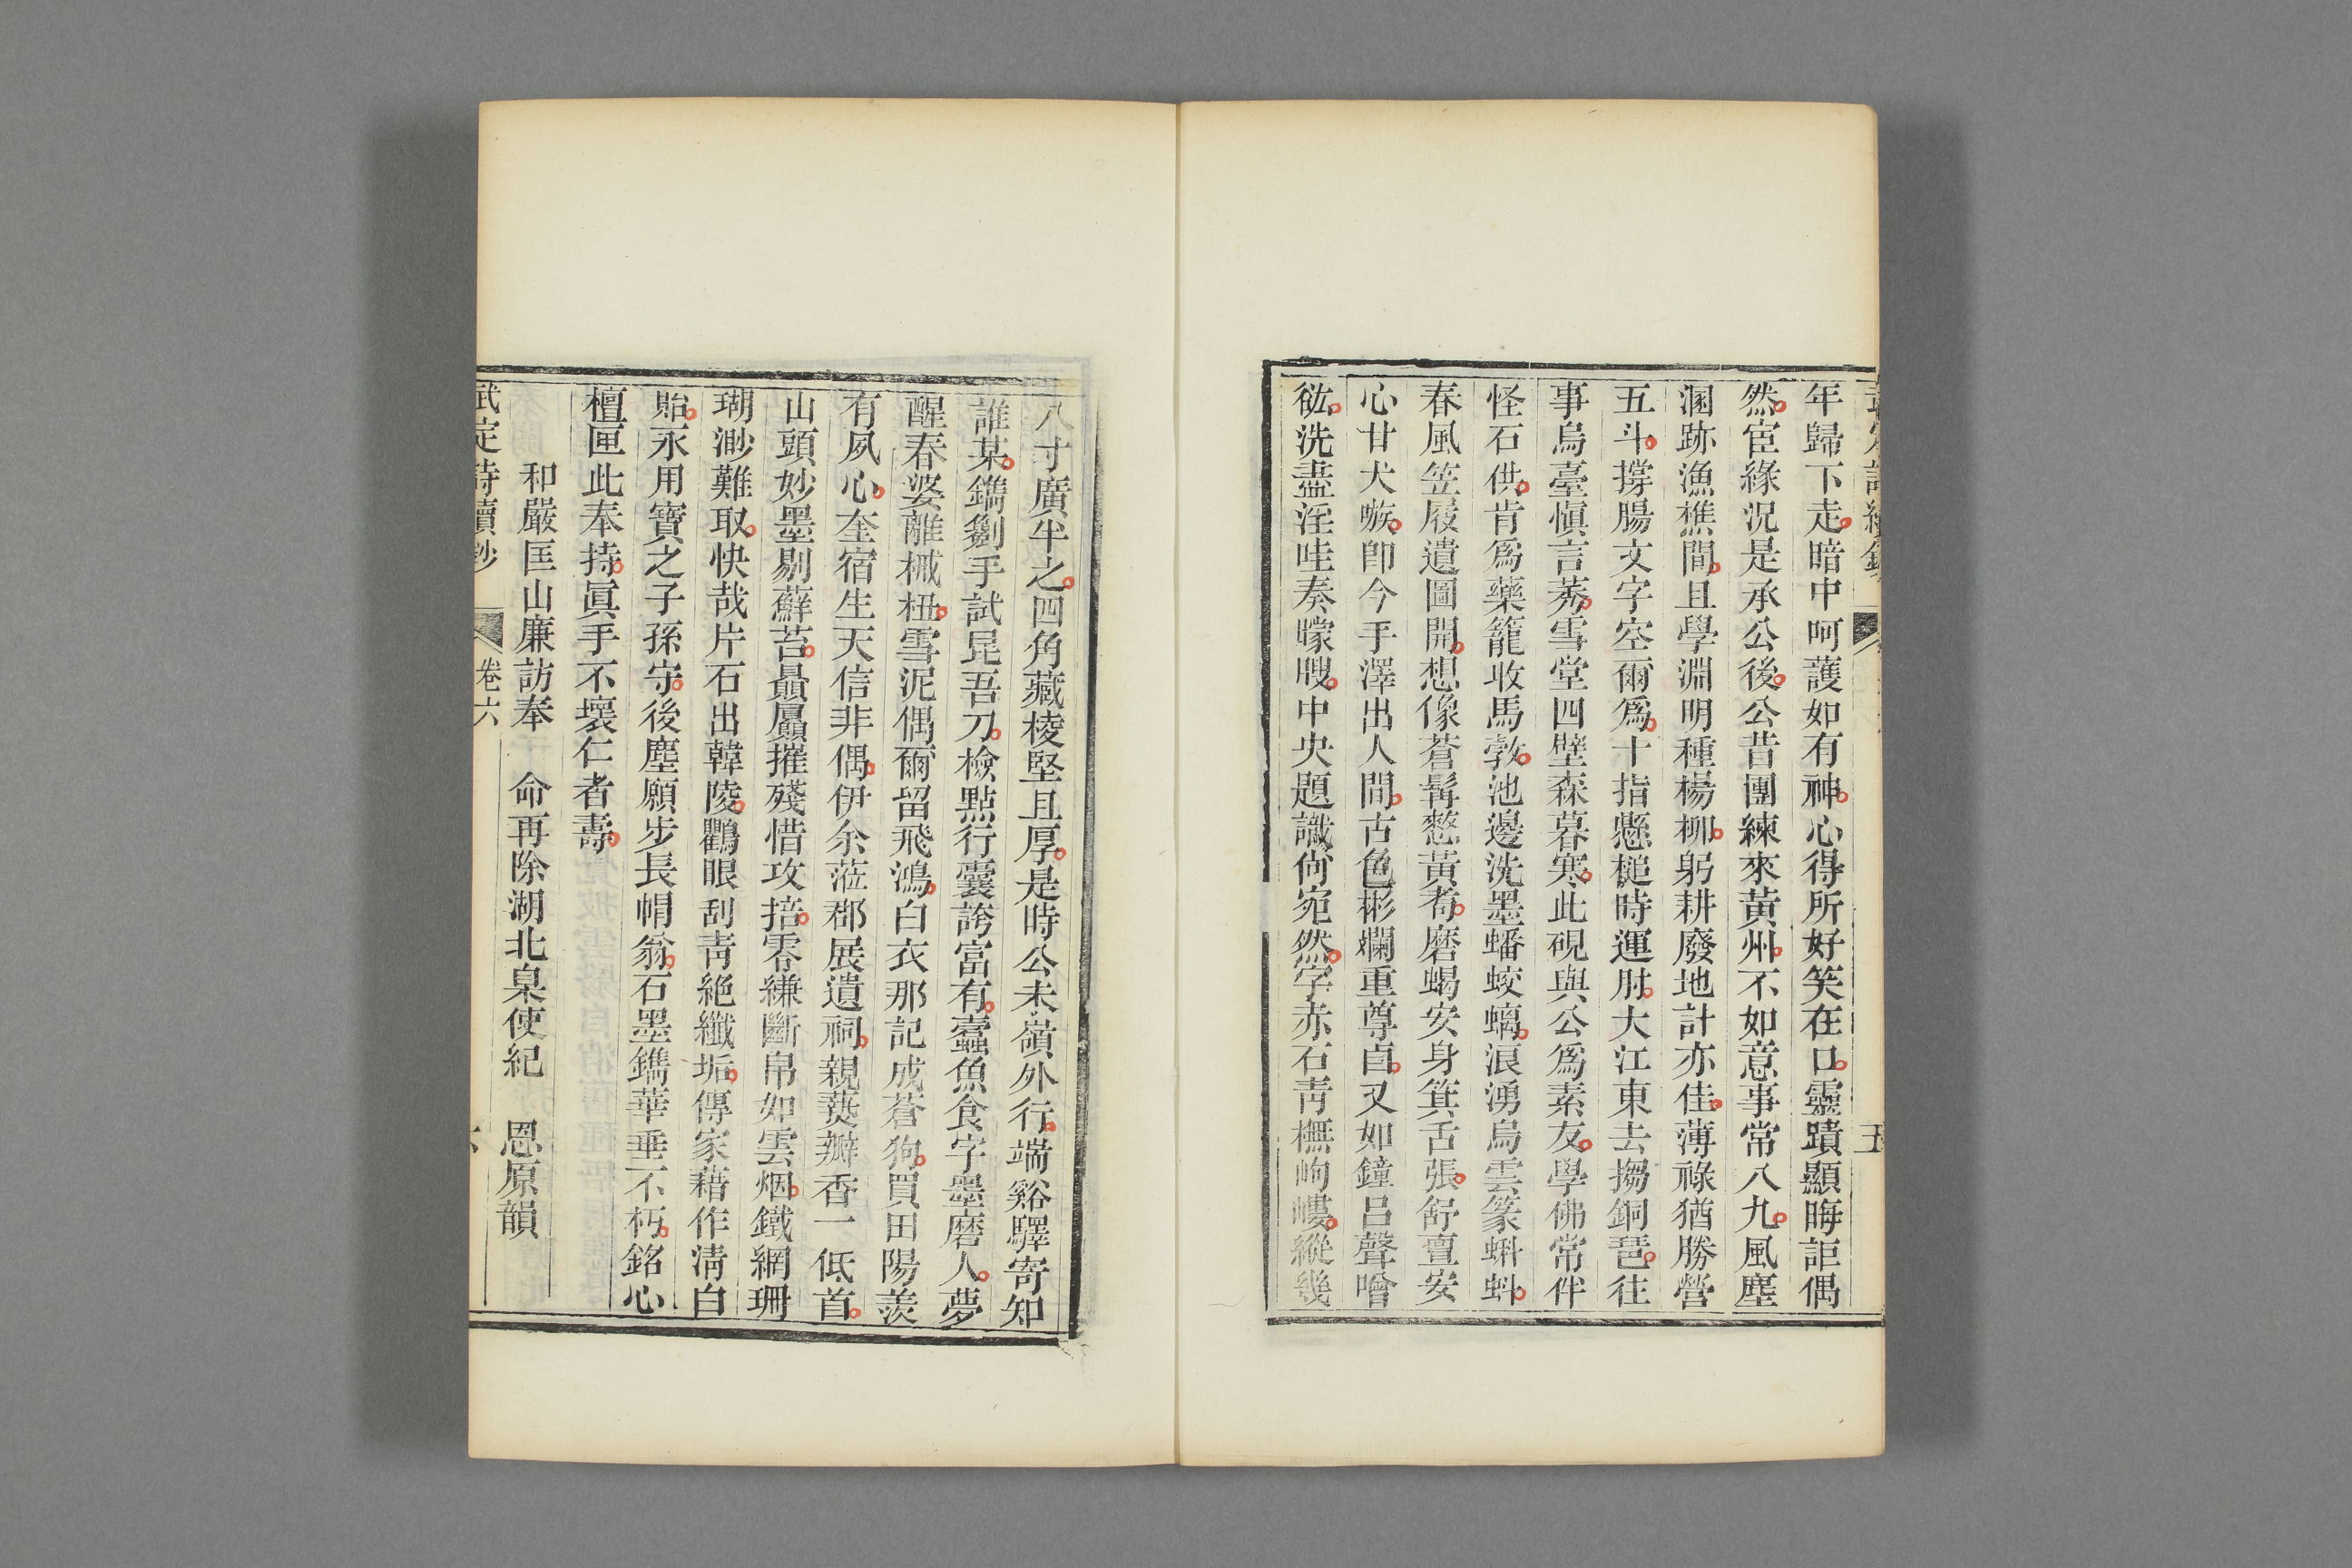 年歸下走暗中呵護如有神心得所好笑在口靈蹟顯晦詎偶
然宦緣況是承公後公昔團練來黃州不如意事常八九風塵
溷跡漁樵間且學淵明種楊柳躬耕廢地計亦佳薄祿猶勝營
五斗撐腸文字空爾為十指懸槌時運肘大江東去搊銅琶往
事烏臺愼言莠雪堂四壁森暮寒此硯與公為素友學佛常伴
怪石供肯為藥籠收馬㪍池邊洗墨蟠蛟螭浪湧烏雲篆蝌蚪
春風笠屐遺圖開想像蒼髯憗黃耇磨蝎安身箕舌張舒亶安
心甘犬嗾卽今手澤出人間古色彬斕重尊卣又如鐘呂聲噌
吰洗盡淫哇奏矇瞍中央題識尙宛然字赤石靑橅岣嶁縱幾
八寸廣半之四角藏稜堅且厚是時公未嶺外行端谿驛寄知
誰某鐫劖手試昆吾刀檢點行囊誇富有蠹魚食字墨磨人夢
醒春婆離械杻雪泥偶爾留飛鴻白衣那記成蒼狗買田陽羨
有夙心奎宿生天信非偶伊余蒞郡展遺祠親爇瓣香一低首
山頭妙墨剔蘚苔贔屭摧殘惜攻掊零縑斷帛如雲烟鐵網珊
瑚渺難取快哉片石出韓陵鸜眼刮靑絶纖垢傳家藉作淸白
貽永用寶之子孫守後塵願步長帽翁石墨鐫華垂不朽銘心
檀匣此奉持眞手不壞仁者壽
和嚴匡山廉訪奉　命再除湖北臬使紀　恩原韻
武定詩續鈔　卷六